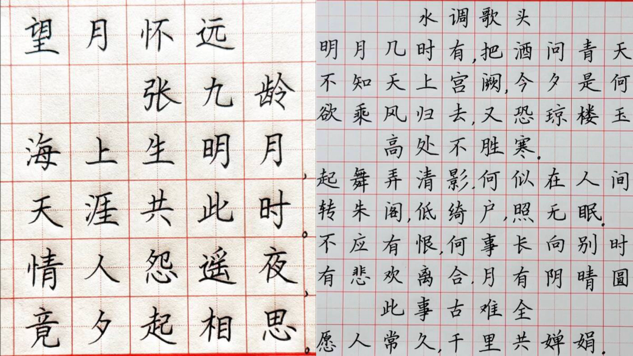 望月怀远
张九龄
海上生明月，
天涯共此时。
情人怨遥夜，
竟夕起相思。
水调歌头
明月几时有，把酒问青天
不知天上宫阙，今夕是何
欲乘风归去，又恐琼楼玉
高处不胜寒。
起舞弄清影，何似在人间
转朱阁，低绮户，照无眠。
不应有恨，何事长向别时
有悲欢离合，月有阴晴圆
此事古难全
愿人常久，千里共婵娟。